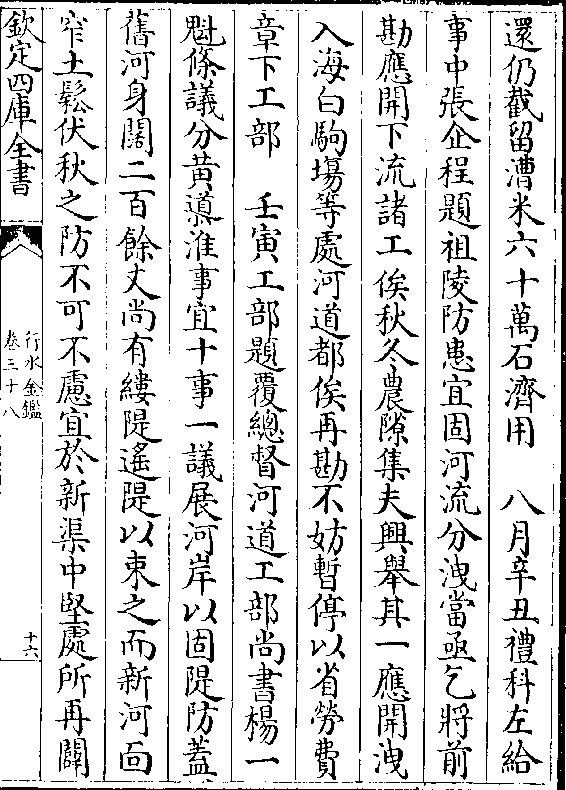 還仍截留漕米六十萬石濟用　八月辛丑禮科左給
事中張企程題祖陵防患宜固河流分洩當亟乞將前
勘應開下流諸工俟秋冬農隙集夫興舉其一應開洩
入海白駒場等處河道都俟再勘不妨暫停以省勞費
章下工部　壬寅工部題覆總督河道工部尚書楊一
魁條議分黃導淮事宜十事一議展河岸以固隄防蓋
舊河身闊二百餘丈尚有縷隄遙隄以束之而新河面
窄土鬆伏秋之防不可不慮宜於新渠中堅處所再闢
欽定四庫全書
行水金鑑
卷三十八
十六